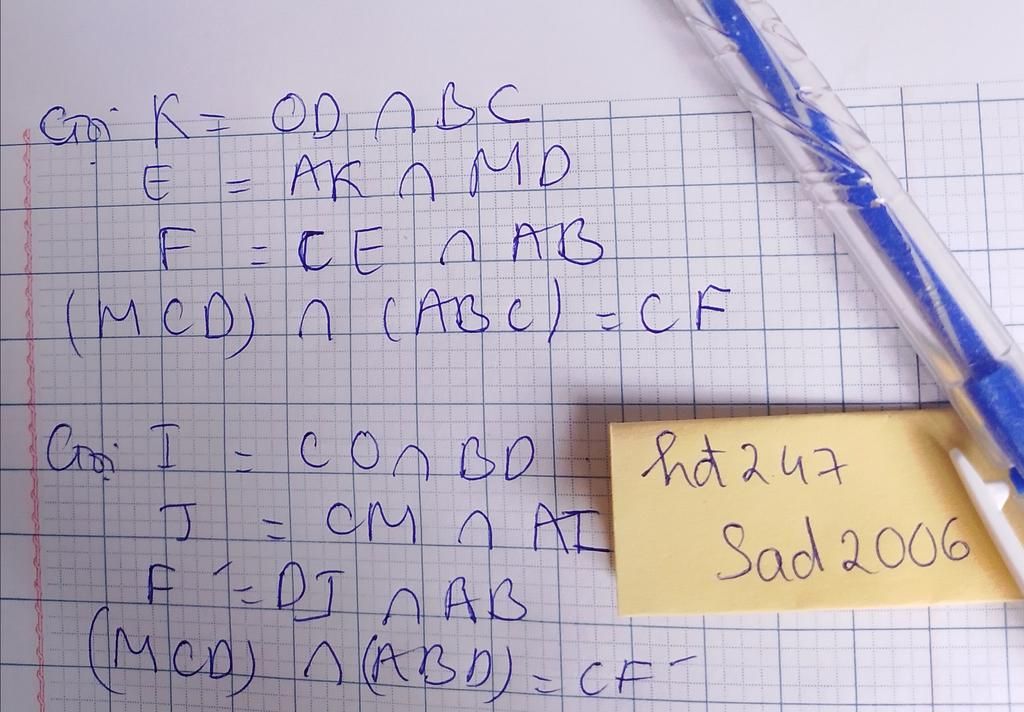 Gọi K = OD ∩ BC
E = AK ∩ MD
F = CE ∩ AB
(MCD) ∩ (ABC) = CF
Gọi I = CO ∩ BD
J = CM ∩ AI
F' = DJ ∩ AB
(MCD) ∩ (ABD) = CF'
hđ247
Sad2006